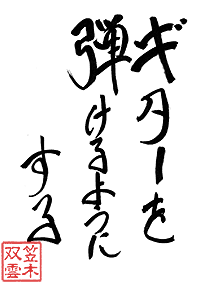 ギターを
弾けるように
する
笠木
双雲